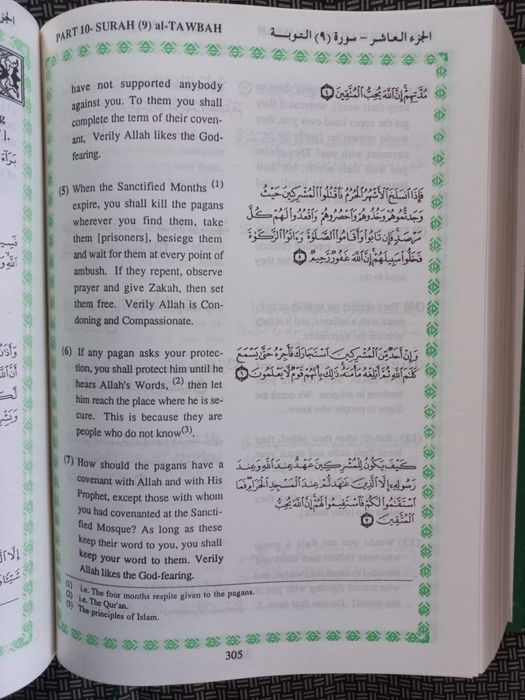 PART 10- SURAH (9) al-TAWBAH
الجزء العاشر - سورة (٩) التوبـة
have not supported anybody
against you. To them you shall
complete the term of their coven-
ant, Verily Allah likes the God-
fearing.
مُدَّتِهِمْ إِنَّ ٱللَّهَ يُحِبُّ ٱلْمُتَّقِينَ ٤
(5) When the Sanctified Months (1)
expire, you shall kill the pagans
wherever you find them, take
them [prisoners], besiege them
and wait for them at every point of
ambush. If they repent, observe
prayer and give Zakah, then set
them free. Verily Allah is Con-
doning and Compassionate.
فَإِذَا ٱنسَلَخَ ٱلْأَشْهُرُ ٱلْحُرُمُ فَٱقْتُلُوا۟ ٱلْمُشْرِكِينَ حَيْثُ
وَجَدتُّمُوهُمْ وَخُذُوهُمْ وَٱحْصُرُوهُمْ وَٱقْعُدُوا۟ لَهُمْ كُلَّ
مَرْصَدٍ فَإِن تَابُوا۟ وَأَقَامُوا۟ ٱلصَّلَوٰةَ وَءَاتَوُا۟ ٱلزَّكَوٰةَ
فَخَلُّوا۟ سَبِيلَهُمْ إِنَّ ٱللَّهَ غَفُورٌ رَّحِيمٌ ٥
(6) If any pagan asks your protec-
tion, you shall protect him until he
hears Allah's Words, (2) then let
him reach the place where he is se-
cure. This is because they are
people who do not know(3).
وَإِنْ أَحَدٌ مِّنَ ٱلْمُشْرِكِينَ ٱسْتَجَارَكَ فَأَجِرْهُ حَتَّىٰ يَسْمَعَ
كَلَٰمَ ٱللَّهِ ثُمَّ أَبْلِغْهُ مَأْمَنَهُۥ ذَٰلِكَ بِأَنَّهُمْ قَوْمٌ لَّا يَعْلَمُونَ ٦
(7) How should the pagans have a
covenant with Allah and with His
Prophet, except those with whom
you had covenanted at the Sancti-
fied Mosque? As long as these
keep their word to you, you shall
keep your word to them. Verily
Allah likes the God-fearing.
كَيْفَ يَكُونُ لِلْمُشْرِكِينَ عَهْدٌ عِندَ ٱللَّهِ وَعِندَ
رَسُولِهِۦٓ إِلَّا ٱلَّذِينَ عَٰهَدتُّمْ عِندَ ٱلْمَسْجِدِ ٱلْحَرَامِ فَمَا
ٱسْتَقَٰمُوا۟ لَكُمْ فَٱسْتَقِيمُوا۟ لَهُمْ إِنَّ ٱللَّهَ يُحِبُّ
ٱلْمُتَّقِينَ ٧
(1) i.e. The four months respite given to the pagans.
(2) i.e. The Qur'an.
(3) The principles of Islam.
305